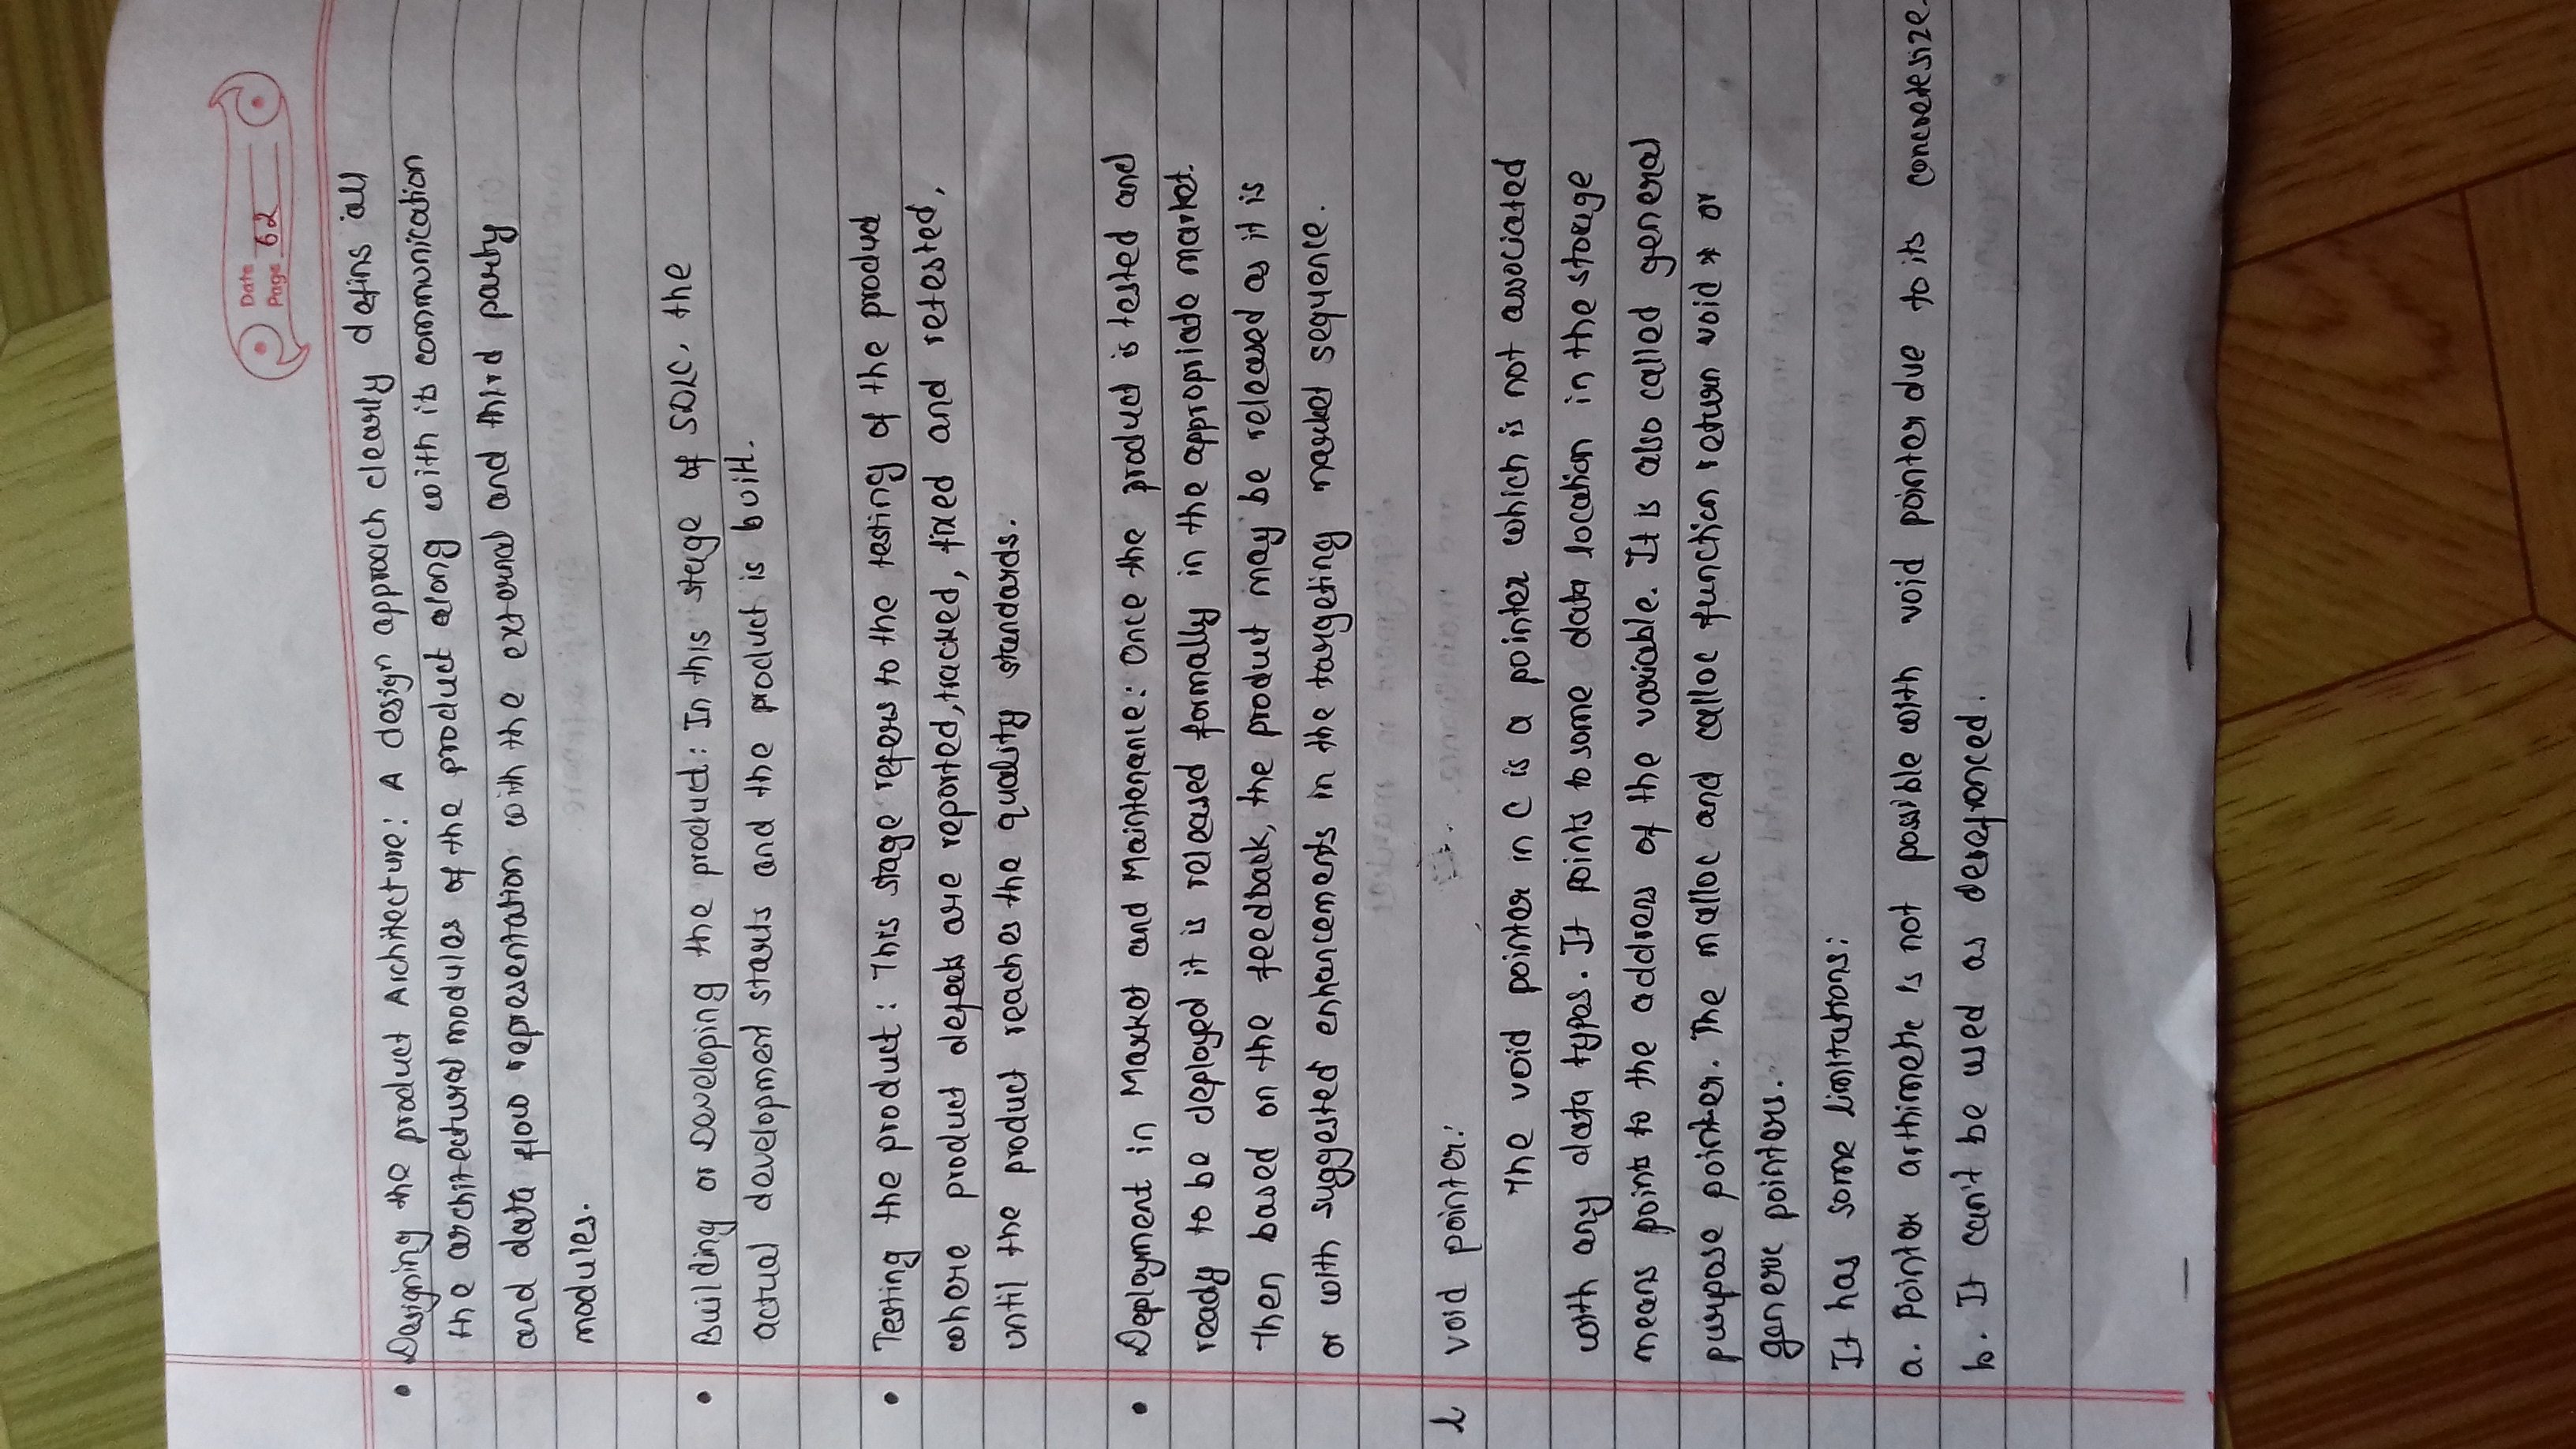 Date
Page 62
• Designing the product Architecture: A design approach clearly defins all
the architectural modules of the product along with its communication
and data flow representation with the external and third party
modules.
• Building or Developing the product: In this stage of SDLC, the
actual development starts and the product is built.
• Testing the product: This stage refers to the testing of the product
where product defects are reported, tracked, fixed and retested,
until the product reaches the quality standards.
• Deployment in Market and Maintenance: Once the product is tested and
ready to be deployed it is released formally in the appropriate market.
Then based on the feedback, the product may be released as it is
or with suggested enhancements in the targeting market sequence.
l void pointer:
The void pointer in C is a pointer which is not associated
with any data types. It points to some data location in the storage
means points to the address of the variable. It is also called general
purpose pointer. The malloc and calloc function return void * or
generic pointers.
It has some limitations:
a. Pointer arthimetic is not possible with void pointer due to its concrete size.
b. It can't be used as derefrenced.